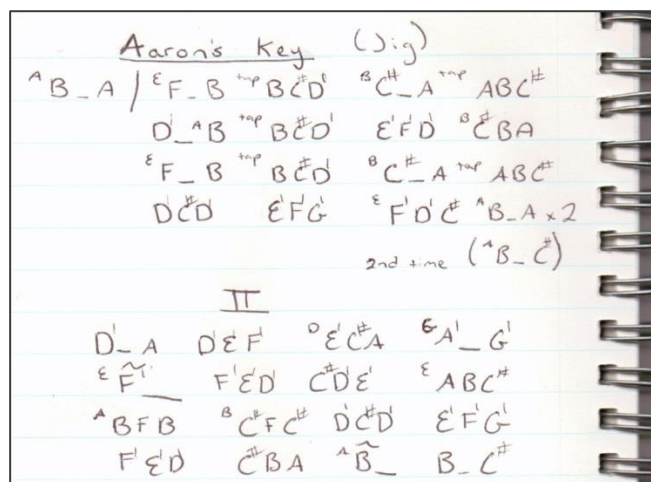 Aaron's Key (Jig)
ᴬB_A / ᴱF_B ᵗᵃᵖ BC#D' ᴮC#_A ᵗᵃᵖ ABC#
D'_ᴬB ᵗᵃᵖ BC#D' E'F'D' ᴮC#BA
ᴱF_B ᵗᵃᵖ BC#D' ᴮC#_A ᵗᵃᵖ ABC#
D'C#D' E'F'G' ᴱF'D'C# ᴬB_A x2
2nd time (ᴬB_C#)
II
D'_A D'E'F' ᴰE'C#A ᴳA'_G'
ᴱF̃'_ F'E'D' C#D'E' ᴱABC#
ᴬBFB ᴮC#FC# D'C#D' E'F'G'
F'E'D' C#BA ᴬB̃_ B_C#